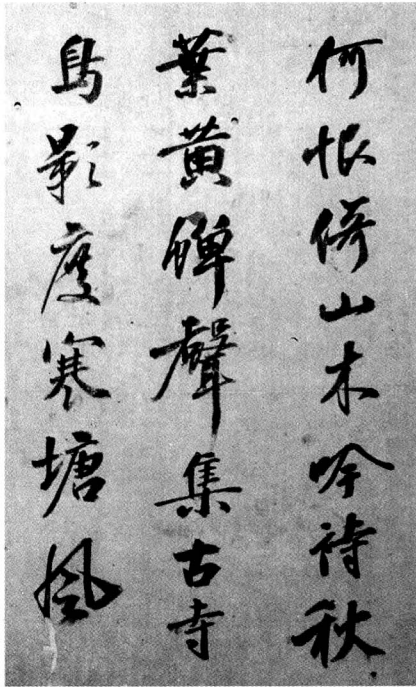 何恨倚山木吟詩秋
葉黄蟬聲集古寺
鳥影度寒塘風